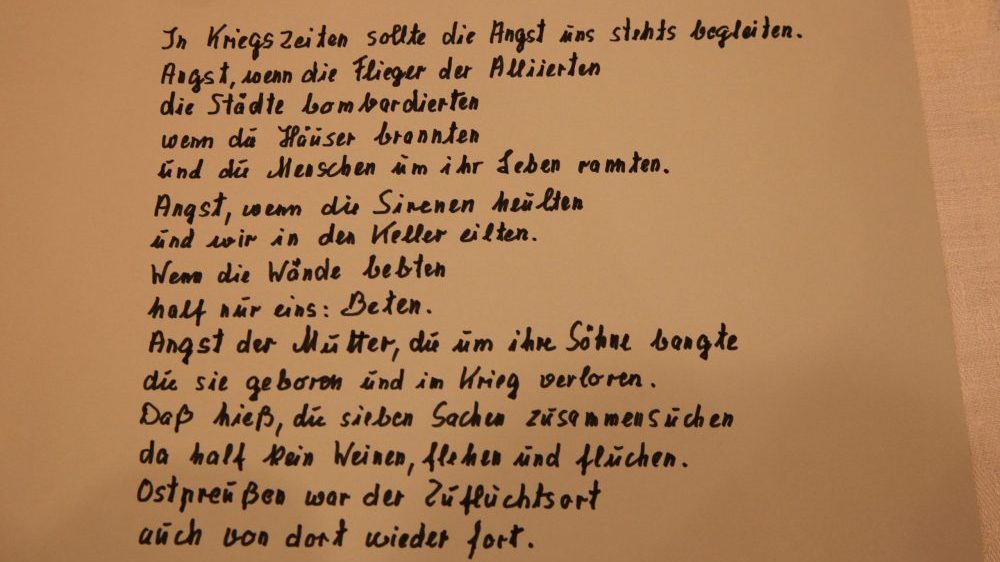 In Kriegszeiten sollte die Angst uns stehts begleiten.
Angst, wenn die Flieger der Alliierten
die Städte bombardierten
wenn die Häuser brannten
und die Menschen um ihr Leben rannten.
Angst, wenn die Sirenen heulten
und wir in den Keller eilten.
Wenn die Wände bebten
half nur eins: Beten.
Angst der Mutter, die um ihre Söhne bangte
die sie geboren und im Krieg verloren.
Daß hieß, die sieben Sachen zusammensuchen
da half kein Weinen, flehen und fluchen.
Ostpreußen war der Zufluchtsort
auch von dort wieder fort.